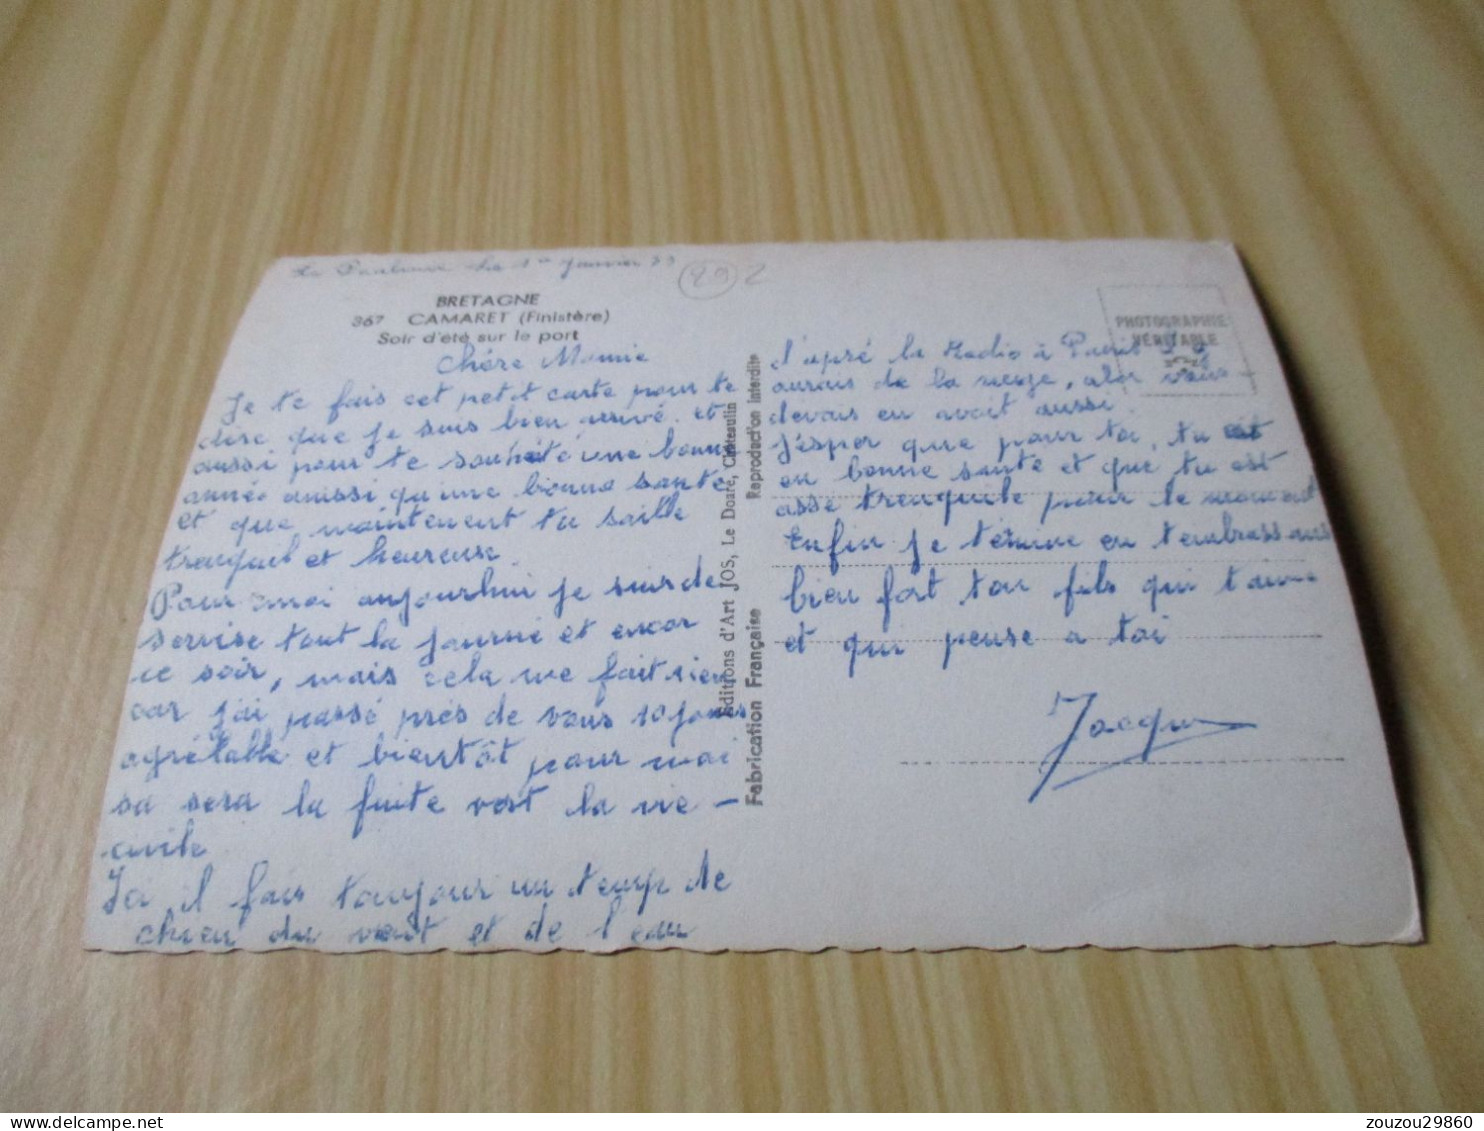 le 1er Janvier 53
29 2
BRETAGNE
367 CAMARET (Finistère)
Soir d'été sur le port
Chère Mamie
Je te fais cet petit carte pour te
dire que je suis bien arrivé. et
aussi pour te souhaité une bonne
année aussi qu'une bonne santé
et que maintenent tu saille
tranquil et heureuse
Pour moi aujourd'hui je suis de
servise tout la journé et encor
ce soir, mais cela me fait rien
car j'ai passé près de vous 10 jours
agréabble et bientôt pour moi
sa sera la fuite vert la vie -
civile
Ici il fais toujour un temp de
chien du vent et de l'eau
Editions d'Art JOS, Le Doaré, Châteaulin
Fabrication Française Reproduction Interdite
PHOTOGRAPHIE
VÉRITABLE
d'apré la Radio à Paris
aurais de la neige, alor vous
devais en avoit aussi.
J'esper que pour toi, tu est
en bonne santé et que tu est
assé tranquile pour le moment
Enfin je termine en t'embrassant
bien fort ton fils qui t'aime
et qui pense a toi
Jacques
zouzou29860